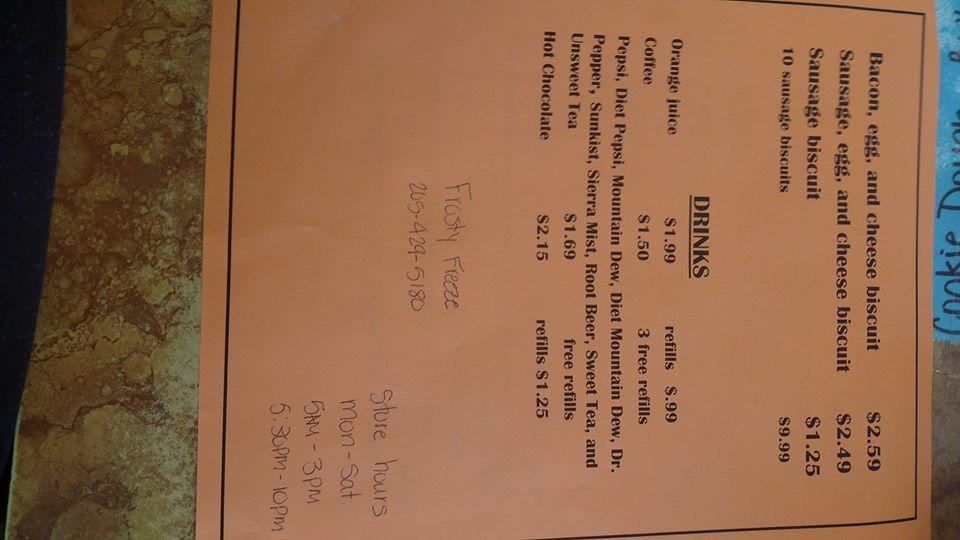 Bacon, egg, and cheese biscuit $2.59
Sausage, egg, and cheese biscuit $2.49
Sausage biscuit $1.25
10 sausage biscuits $9.99
DRINKS
Orange juice $1.99 refills $.99
Coffee $1.50 3 free refills
Pepsi, Diet Pepsi, Mountain Dew, Diet Mountain Dew, Dr.
Pepper, Sunkist, Sierra Mist, Root Beer, Sweet Tea, and
Unsweet Tea $1.69 free refills
Hot Chocolate $2.15 refills $1.25
Frosty Freeze
205-429-5180
Store hours
mon-sat
5AM-3PM
5:30PM-10PM